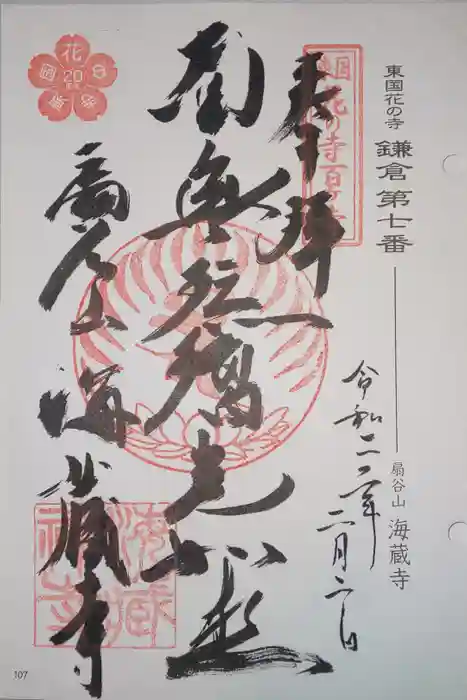 東国花の寺 鎌倉第七番 扇谷山 海蔵寺
東国花の寺百ヶ寺
奉拝
令和二年二月二日
南無琉璃光如来
扇谷山
海蔵寺
花
20
107